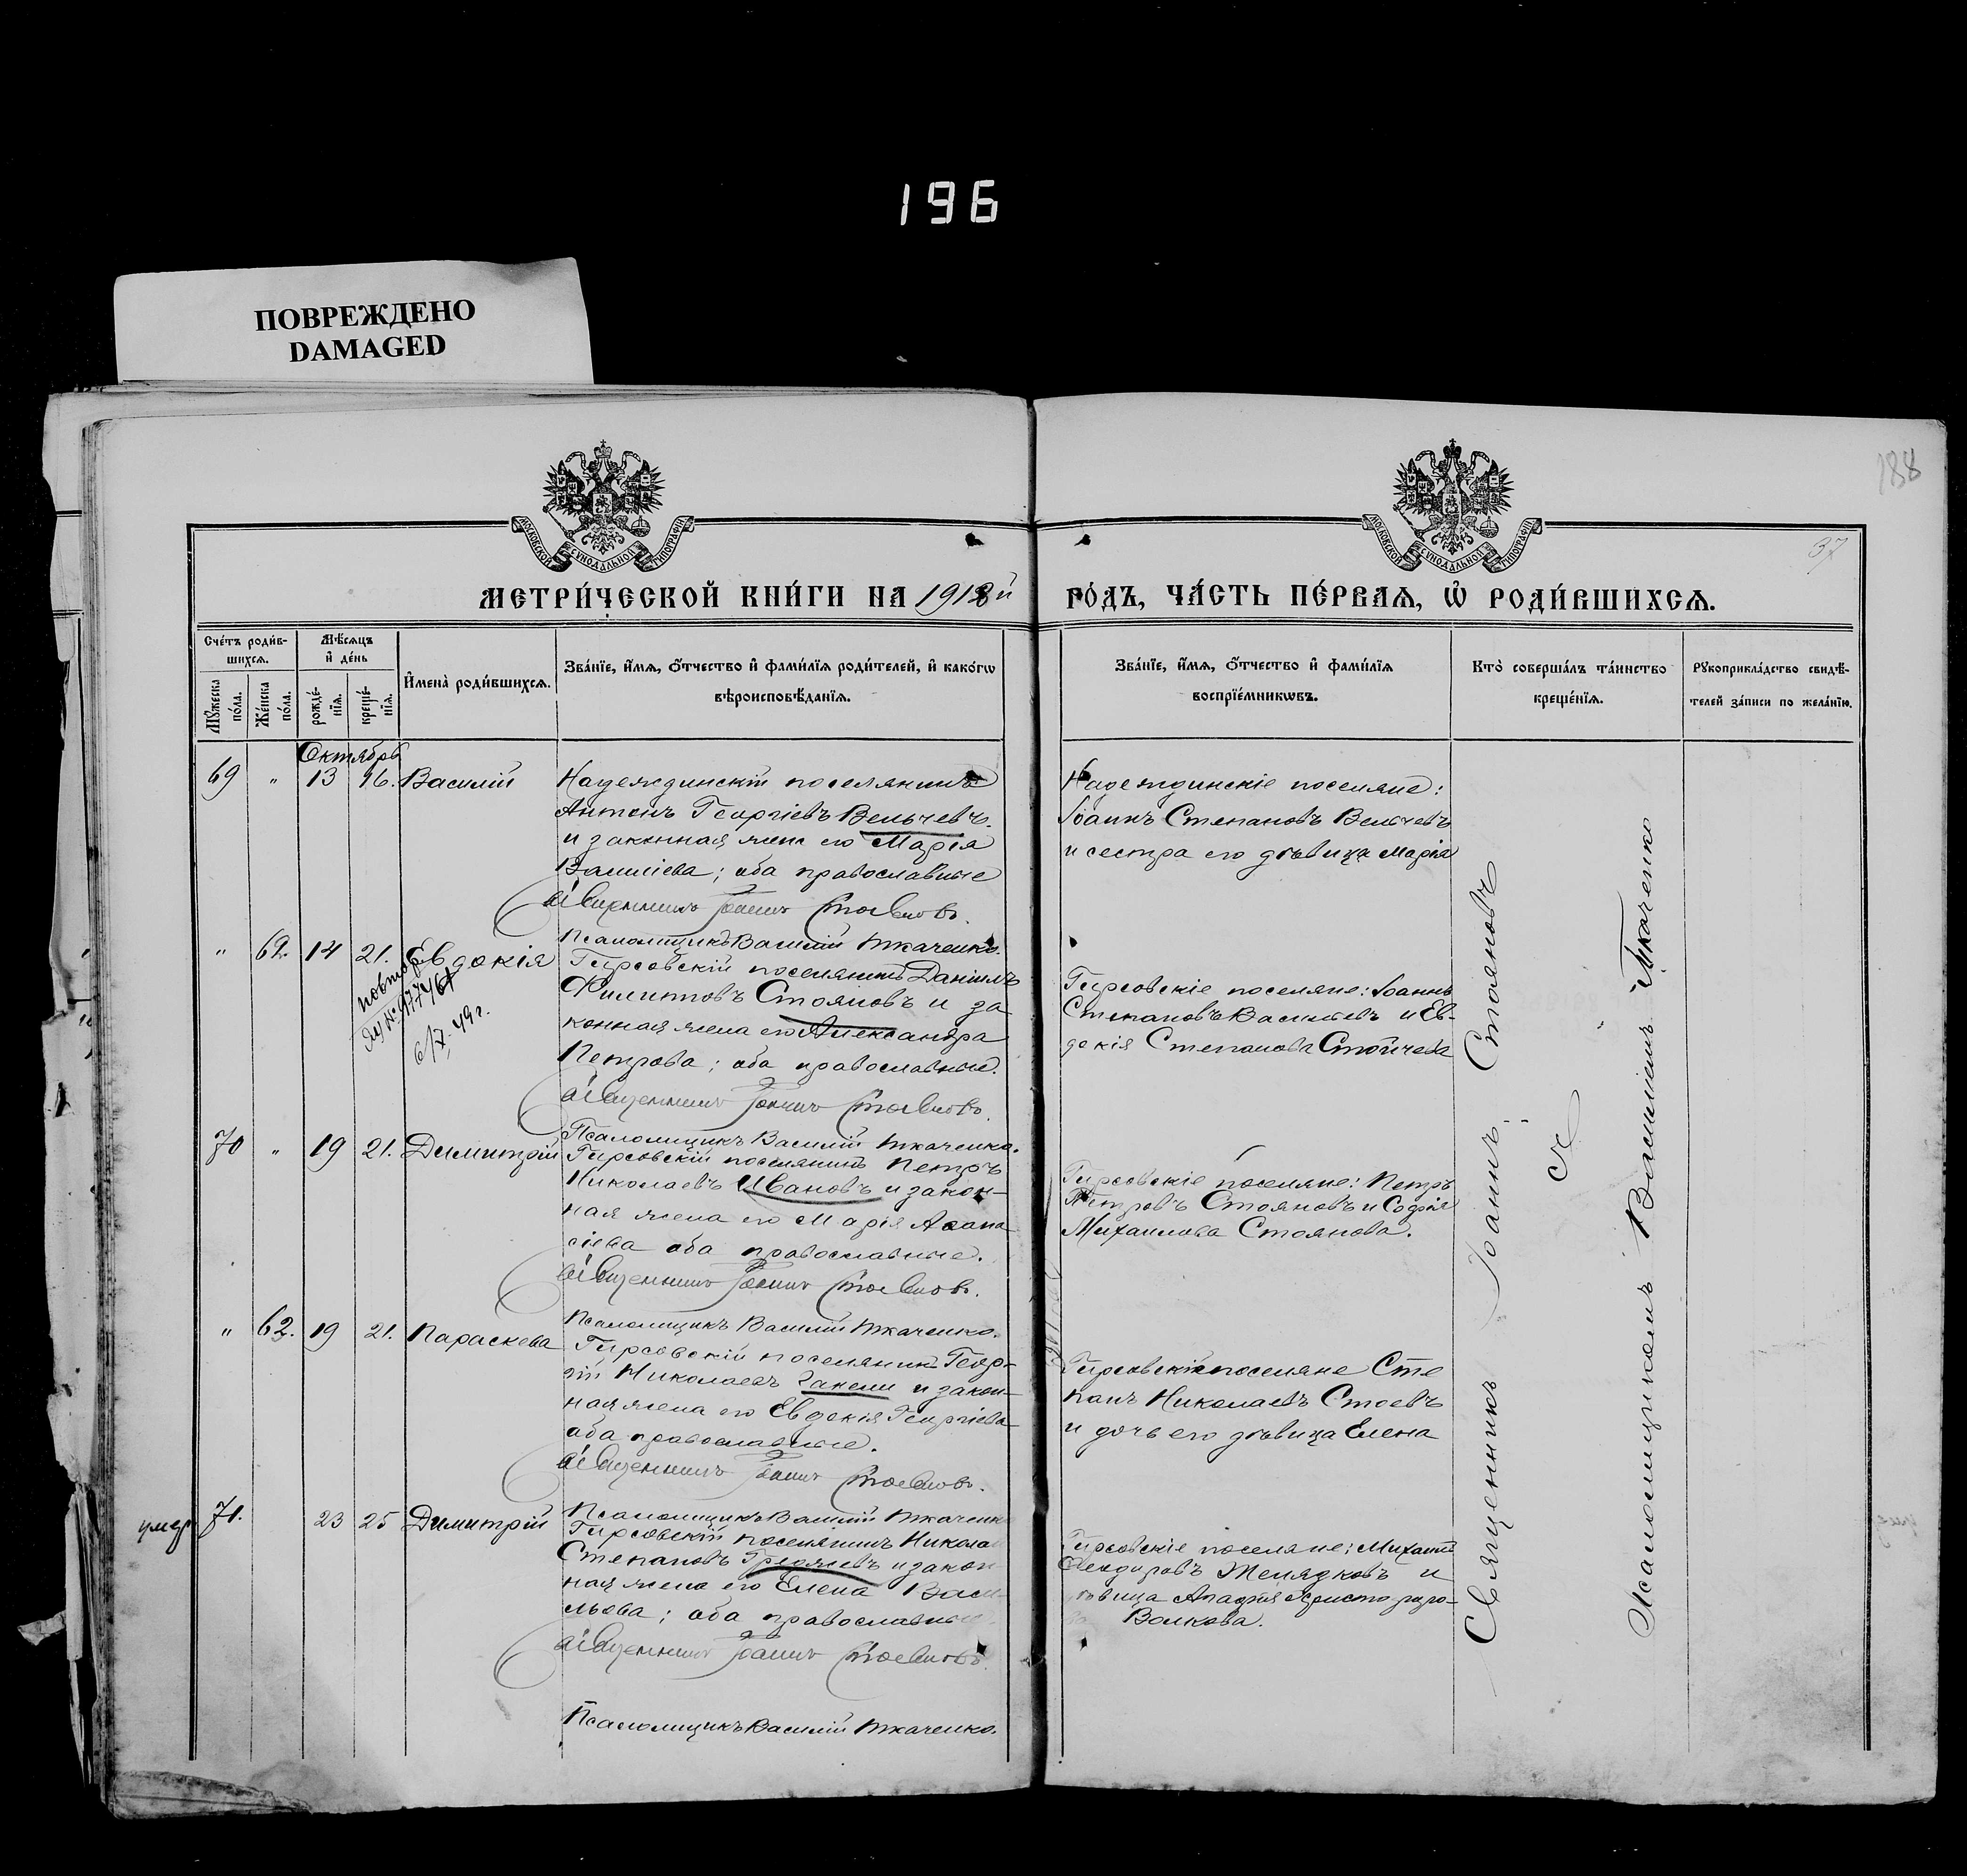 196
ПОВРЕЖДЕНО
DAMAGED
188
37
МОСКОВСКОЙ СУНОДАЛЬНОЙ ТИПОГРАФІИ
МОСКОВСКОЙ СУНОДАЛЬНОЙ ТИПОГРАФІИ
МЕТРИ́ЧЕСКОЙ КНИ́ГИ НА 1918й
ГО́ДЪ, ЧА́СТЬ ПЕ́РВАѦ, Ѡ РОДИ́ВШИХСѦ.
Сче́тъ роди́в-
шихсѧ.
Мꙋ́жеска по́ла.
Же́нска по́ла.
Мѣ́сѧцъ
и҆ де́нь
рожде́-
нїѧ.
креще́-
нїѧ.
И҆мена̀ роди́вшихсѧ.
Зва́нїе, и҆́мѧ, ѻ҆́тчество и҆ фами́лїѧ роди́телей, и҆ како́гѡ
вѣроисповѣ́данїѧ.
Зва́нїе, и҆́мѧ, ѻ҆́тчество и҆ фами́лїѧ
воспрїе́мникѡвъ.
Кто̀ соверша́лъ та́инство
креще́нїѧ.
Рꙋкоприкла́дство свидѣ́-
телей за́писи по жела́нїю.
Октябрь
69 " 13 16. Василій
Надеждинскій поселянинъ
Антонъ Георгіевъ Вельчевъ
и законная жена его Марія
Василіева; оба православные
Священникъ Іоаннъ Стояновъ.
Псаломщикъ Василій Ткаченко.
Надеждинскіе поселяне:
Іоаннъ Степановъ Вельчевъ
и сестра его дѣвица Марія
" 62. 14 21. Евдокія
повтор.
6/7. 49 г.
Гирсовскій поселянинъ Даніилъ
Филипповъ Стояновъ и за
конная жена его Александра
Петрова; оба православные.
Священникъ Іоаннъ Стояновъ.
Псаломщикъ Василій Ткаченко.
Гирсовскіе поселяне: Іоаннъ
Степановъ Василевъ и Ев-
докія Степанова Стойчева
70 " 19 21. Димитрій
Гирсовскій поселянинъ Петръ
Николаевъ Ивановъ и закон-
ная жена его Марія Аѳана
сіева оба православные.
Священникъ Іоаннъ Стояновъ.
Псаломщикъ Василій Ткаченко.
Гирсовскіе поселяне: Петръ
Петровъ Стояновъ и Софія
Михаилова Стоянова.
" 62. 19 21. Параскева
Гирсовскій поселянинъ Геор-
гій Николаевъ Ганели и закон-
ная жена его Евдокія Георгіева
оба православные.
Священникъ Іоаннъ Стояновъ.
Псаломщикъ Василій Ткаченко
Гирсовскіе поселяне Сте
панъ Николаевъ Стоевъ
и дочь его дѣвица Елена
умер 71. 23 25 Димитрій
Гирсовскій поселянинъ Никола
Степановъ и закон
ная жена его Елена Васи
льева; оба православные
Священникъ Іоаннъ Стояновъ.
Псаломщикъ Василій Ткаченко.
Гирсовскіе поселяне: Михаилъ
Ѳеодоровъ Желядковъ и
Волкова.
Священникъ Іоаннъ Стояновъ
съ
Псаломщикомъ Василіемъ Ткаченко